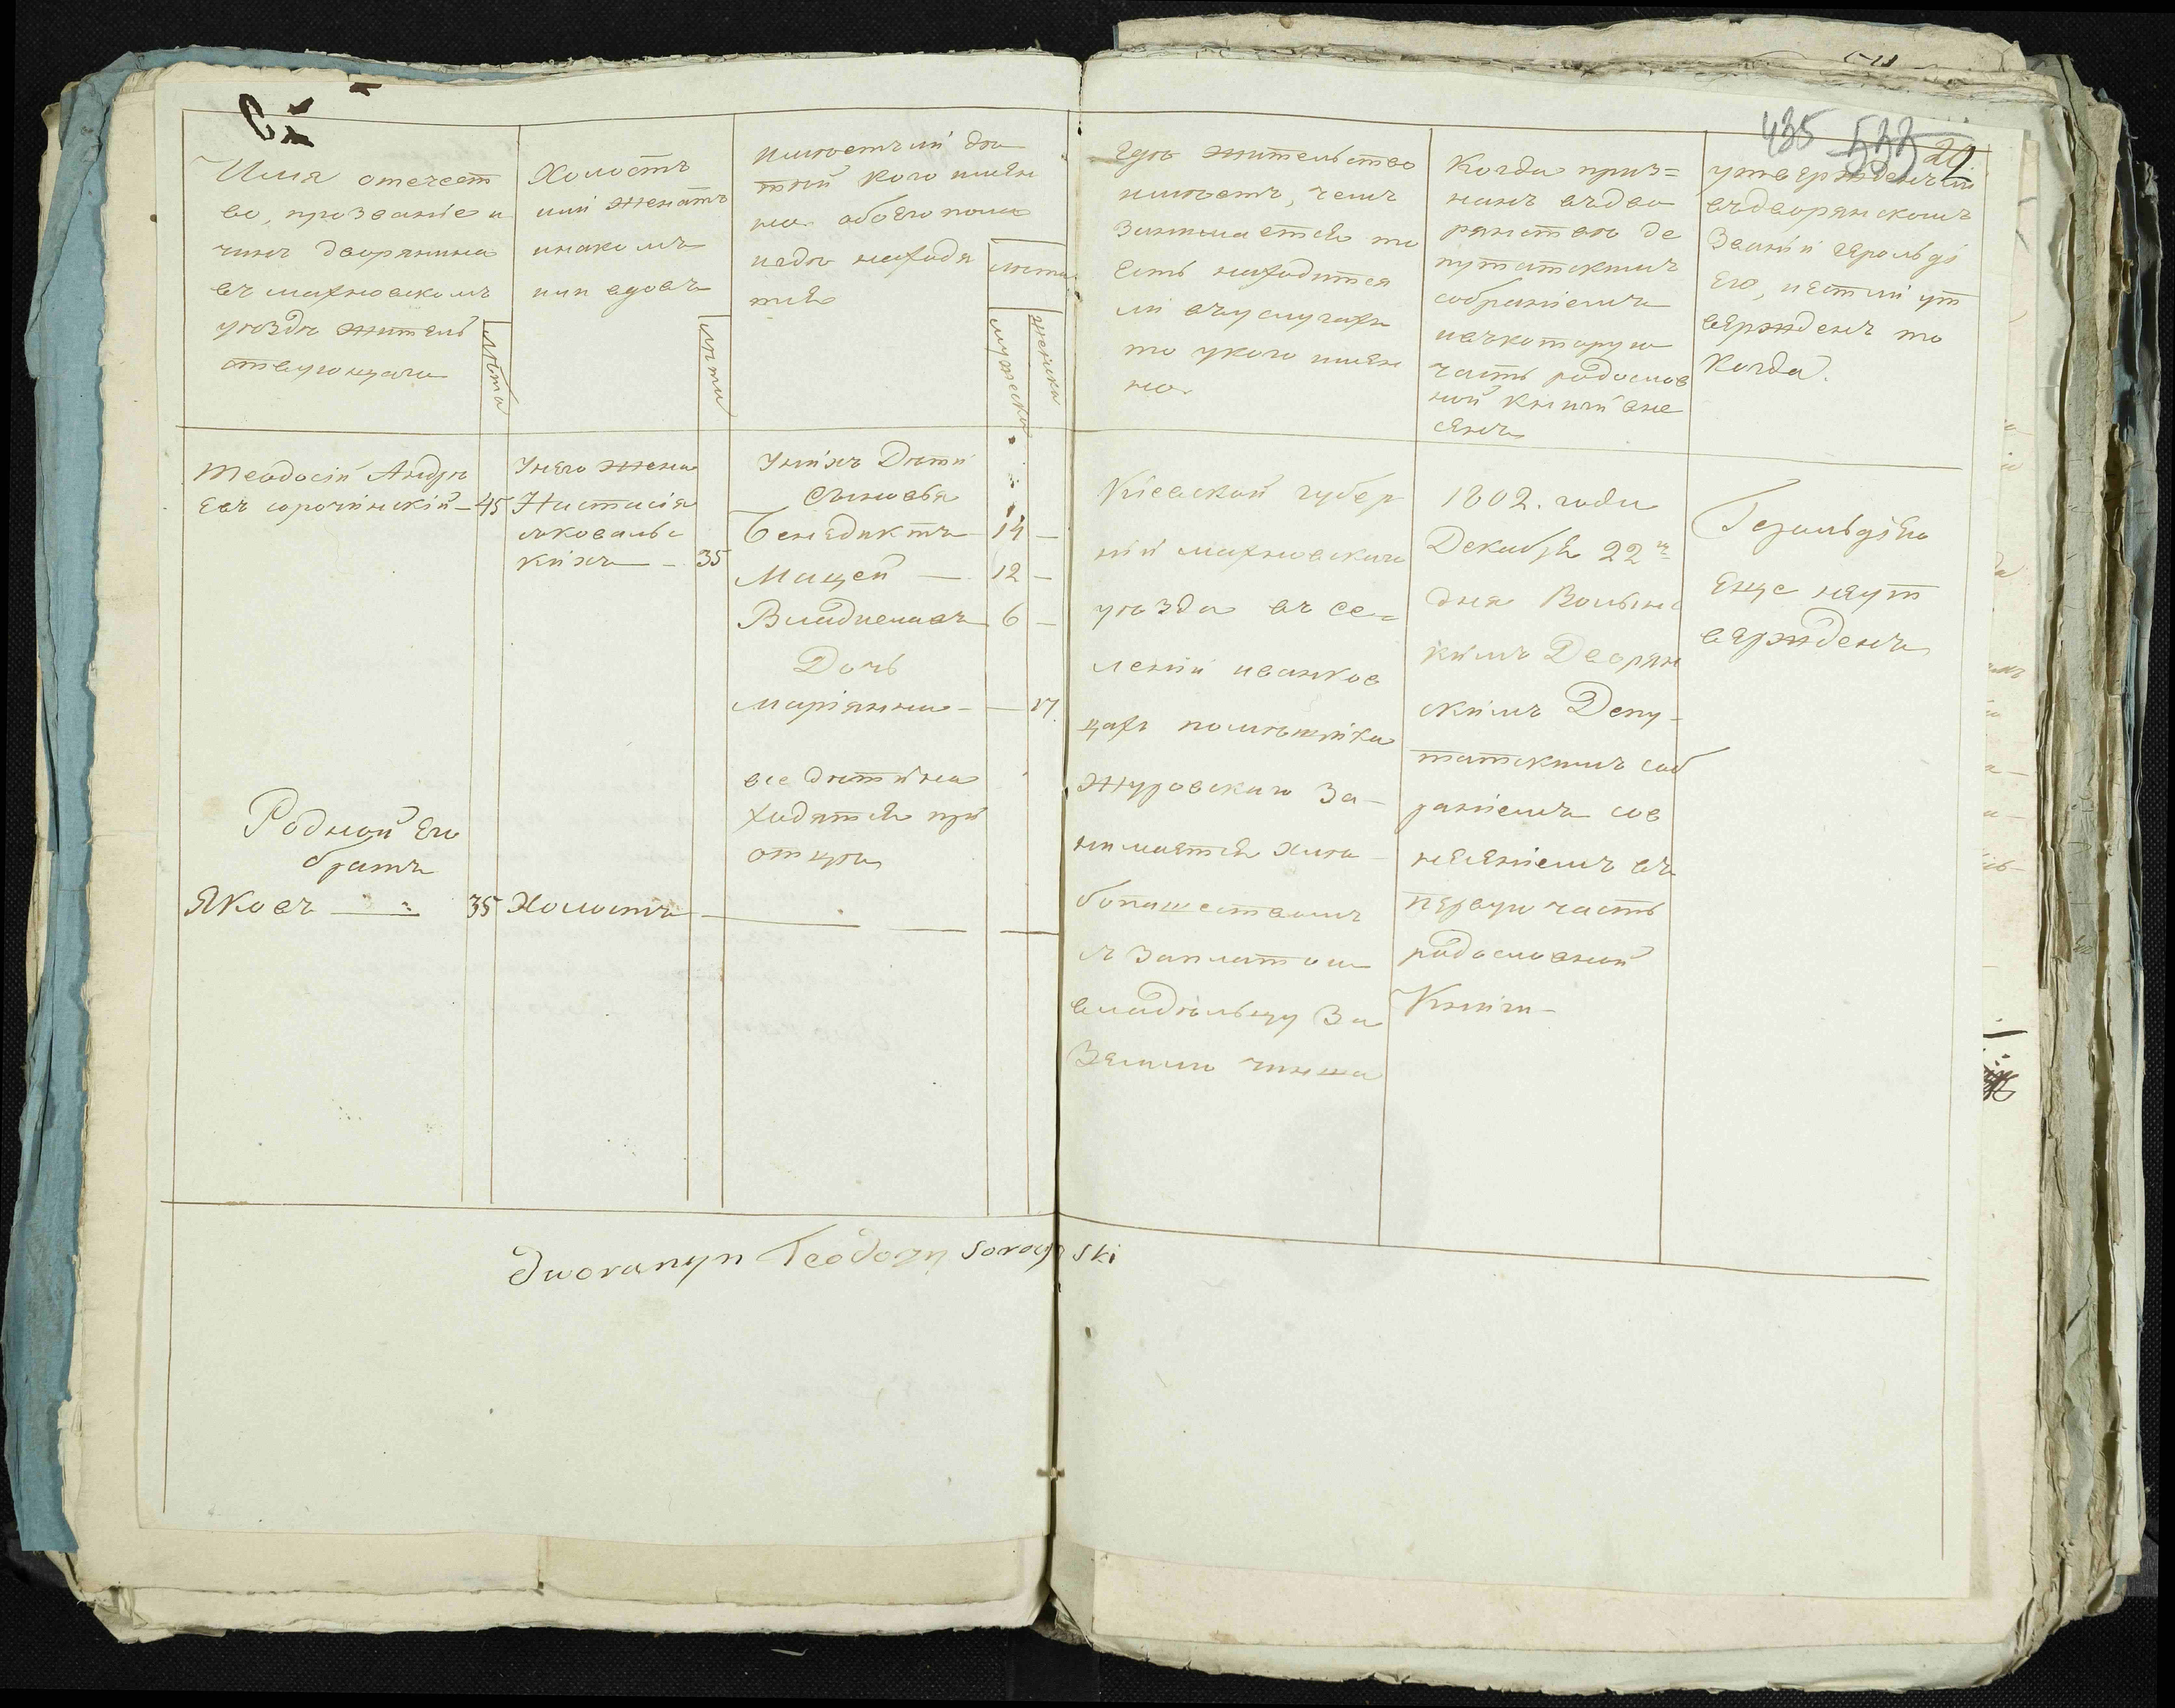 435 533 20
Имя отечест
во, прозваніе и
чинъ дворянина
въ махновскомъ
уѣздѣ житель
ствующаго
Лѣта
Холостъ
или женатъ
инакомъ
или вдовъ
лѣта
имѣетъли дѣ
тей кого имян
но обоего пола
игдѣ находя
тся
лѣта
мужеска
женска
гдѣ жительство
имѣетъ, чемъ
Занимается то
Есть находится
ли въуслугахъ
то укого имян
но
Когда приз=
нанъ въдво
рянствѣ де
путатскимъ
собраніемъ
ивъкоторую
часть родослов
ной книги вне
сенъ
утвержденъли
въдворянскомъ
Званіи герольді
ею, иестли ут
вержденъ то
Когда.
Теодосій Андрѣ
евъ сорочинскій — 45
Унего жена
Настасія
яковальс
кихъ — 35
Унихъ Дѣти
Сыновья
Бенедиктъ — 14 —
Мацей — 12 —
Владиславъ — 6 —
Дочь
маріянна — — 17.
все дѣти на
ходятся при
отцѣ
Родной Его
братъ
Яковъ — 35 Холостъ —
Кіевской губер
ніи махновскаго
уѣзда въ се=
леніи иванков
цахъ помѣщика
Журовскаго За-
нимается хлѣ-
бопашествомъ
съ Заплатою
владѣльцу За
Землю чинша
1802. года
Декабря 22го
дня Волынс
кимъ Дворян
скимъ Депу-
татскимъ соб
раніемъ сов
несеніемъ въ
первую часть
родословной
Книги —
Герольдією
еще неут
вержденъ
Dworanyn Teodozy Soroczynski